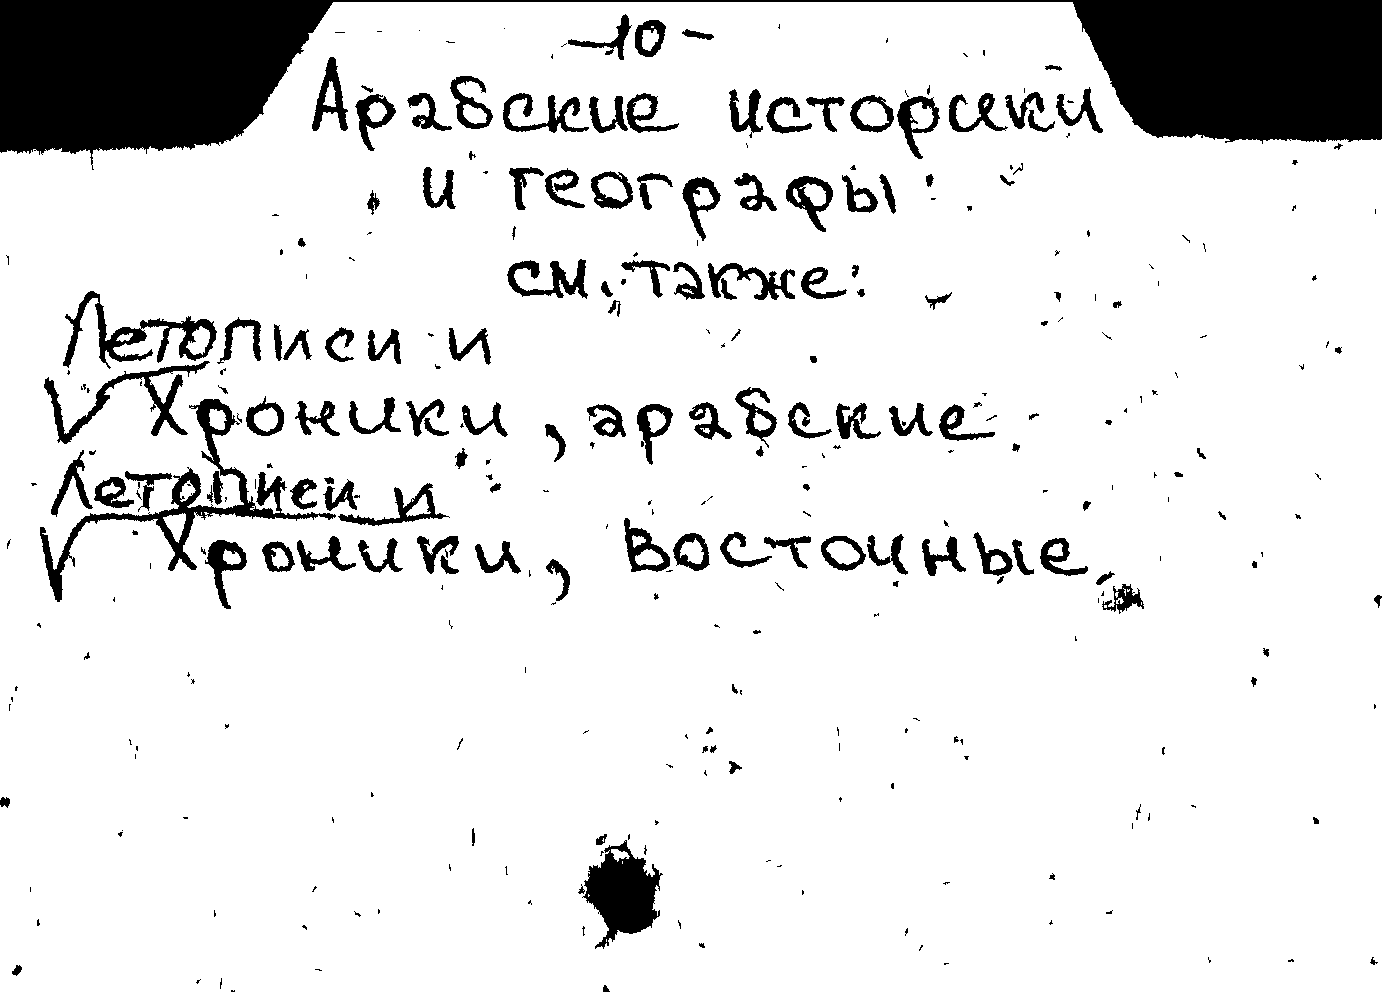 -10-
Арабские историки
и географы:
см. также:
Летописи и
Хроники, арабские
Летописи и
Хроники, восточные